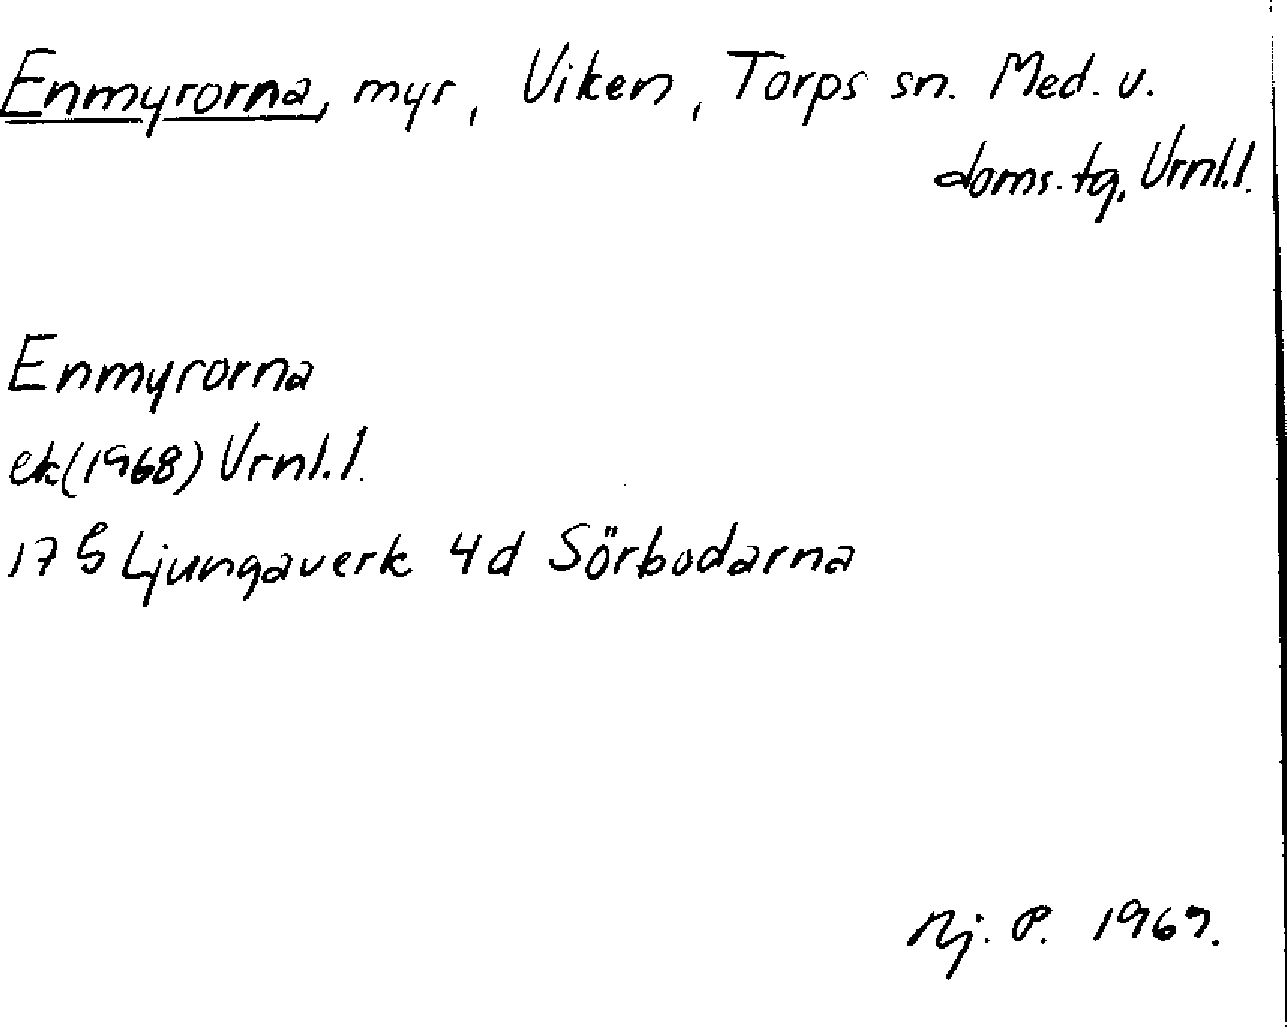 Enmyrorna, myr, Viken, Torps sn. Med. v.
doms. tg. Vrnl.l.
Enmyrorna
ek(1968) Vrnl.l.
17 G Ljungaverk 4d Sörbodarna
Nj. P. 1969.